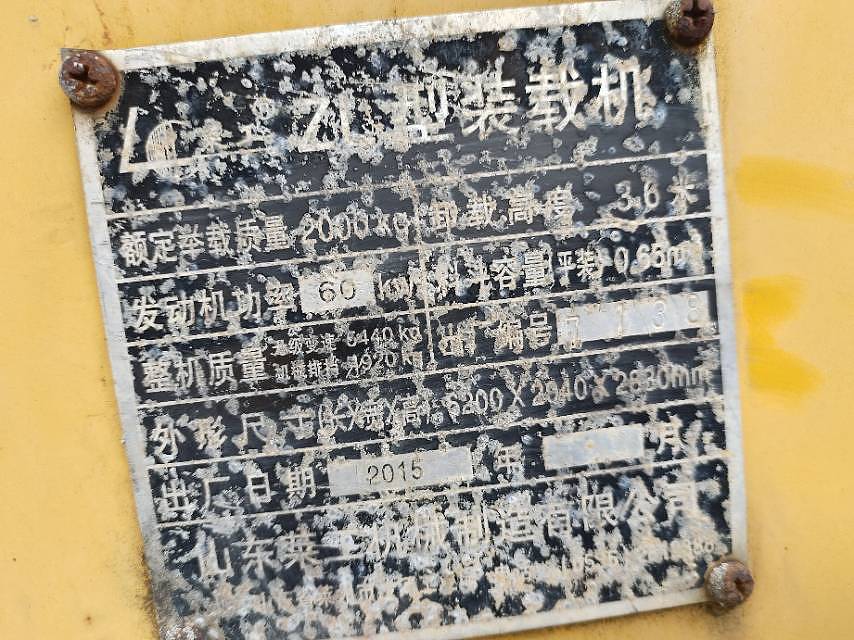 ZL 型装载机
额定举载质量 2000kg 卸载高度 3.6 米
发动机功率 60 kW 料斗容量(平装) 0.65m³
整机质量 无级变速 5440kg
机械换挡 4920kg
出厂编号 7738
外形尺寸(长×宽×高): 6200×2040×2680mm
出厂日期 2015 年 月
山东莱工机械制造有限公司